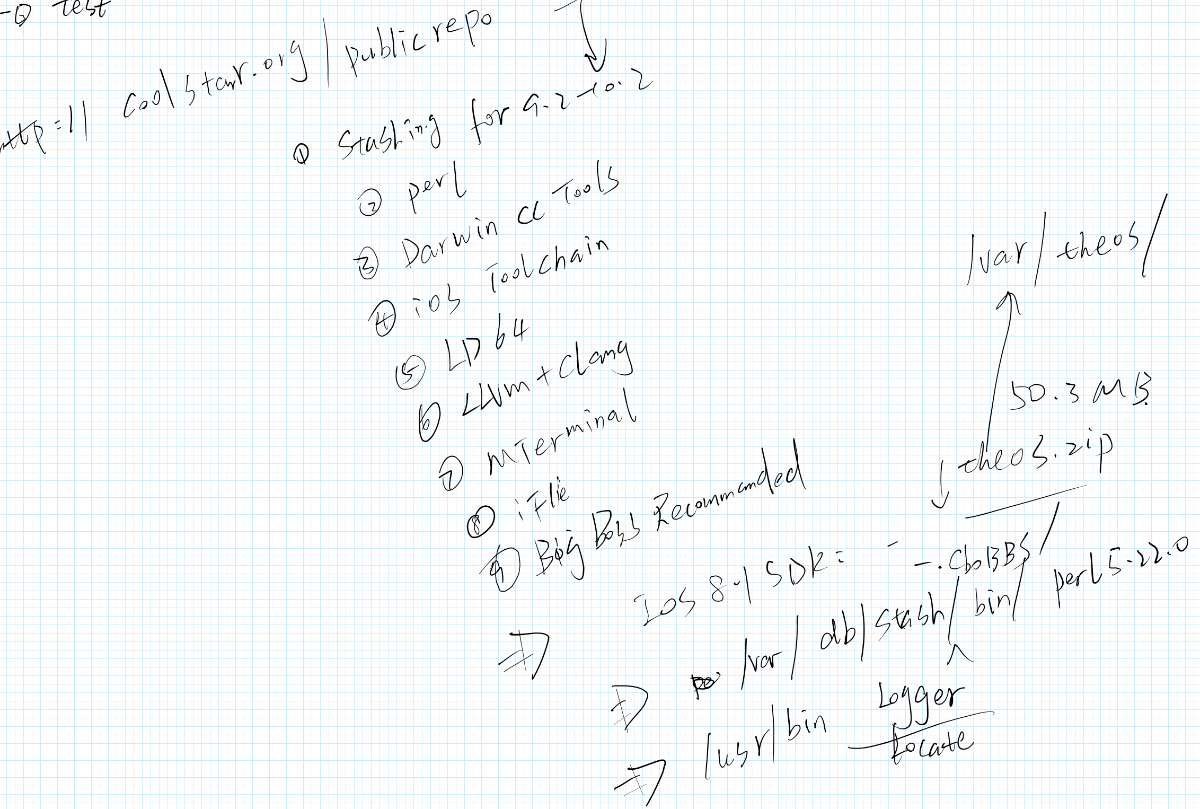 test
http://coolstar.org/publicrepo
① Stashing for 9.2-10.2
② perl
③ Darwin CC Tools
④ iOS Toolchain
⑤ LD 64
⑥ LLVM + Clang
⑦ MTerminal
⑧ iFlie
⑨ BigBoss Recommanded
/var/theos/
50.3 MB
theos.zip
IOS 8.1 SDK:
⇒ /var/db/stash/
bin/ perl5.22.0
⇒ /usr/bin
Logger
Locate